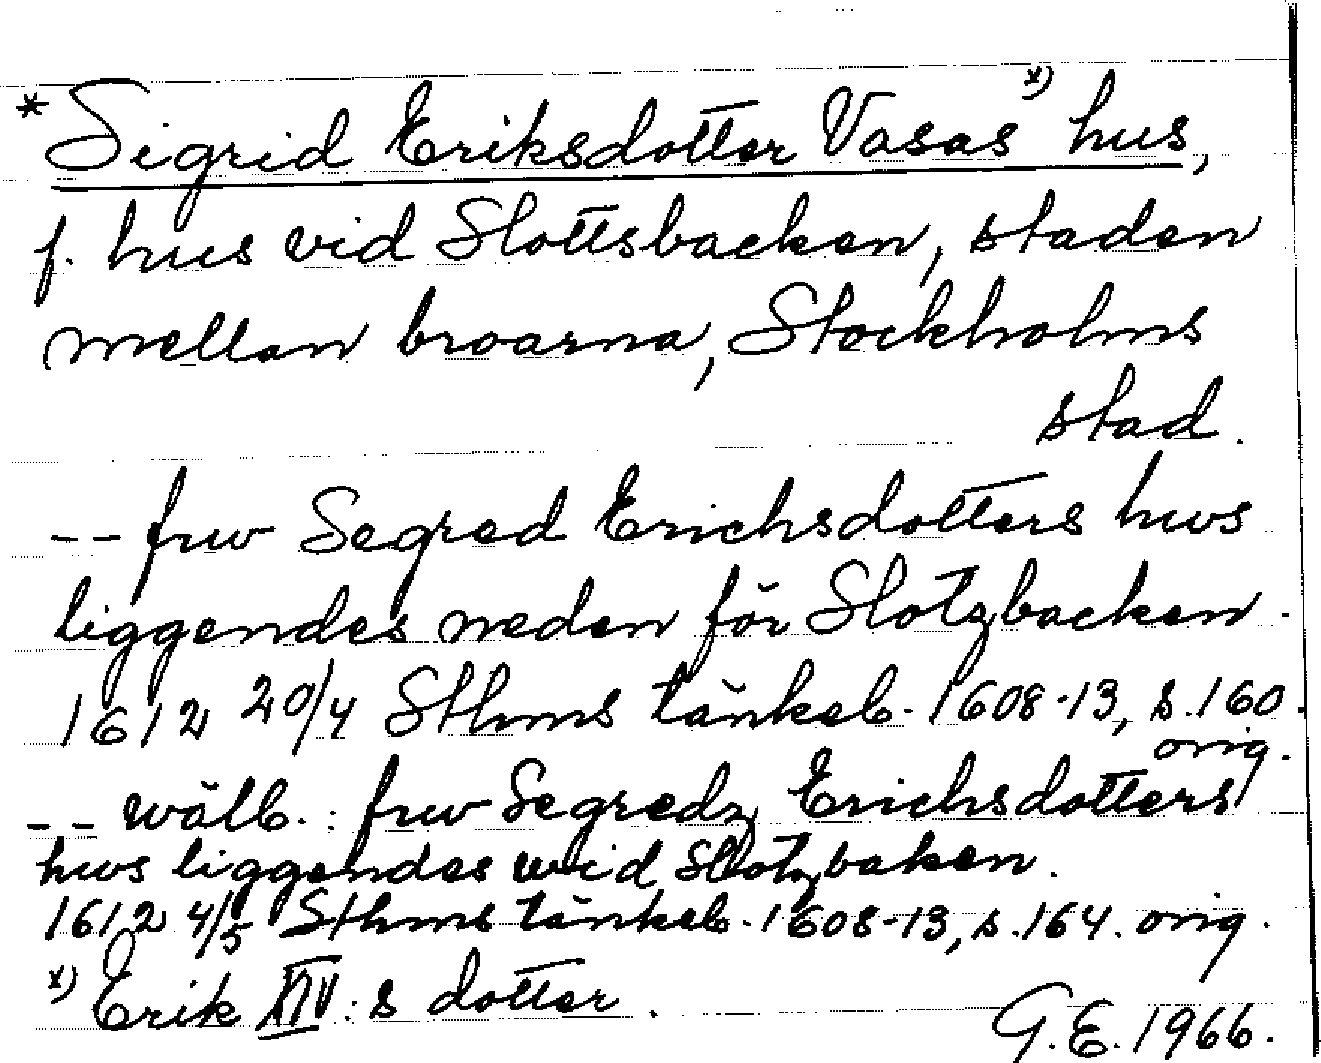 * Sigrid Eriksdotter Vasas x) hus,
f. hus vid Slottsbacken, staden
mellan broarna, Stockholms
stad.
-- frw Segred Erichsdotters hws
liggendes neden för Slotzbacken.
1612 20/4 Sthms tänkeb. 1608-13, s. 160.
orig.
-- wälb.: frw Segredz Erichsdotters
hws liggendes wid Slotzbaken.
1612 4/5 Sthms tänkeb. 1608-13, s. 164. orig.
x) Erik XIV:s dotter.
G.E. 1966.